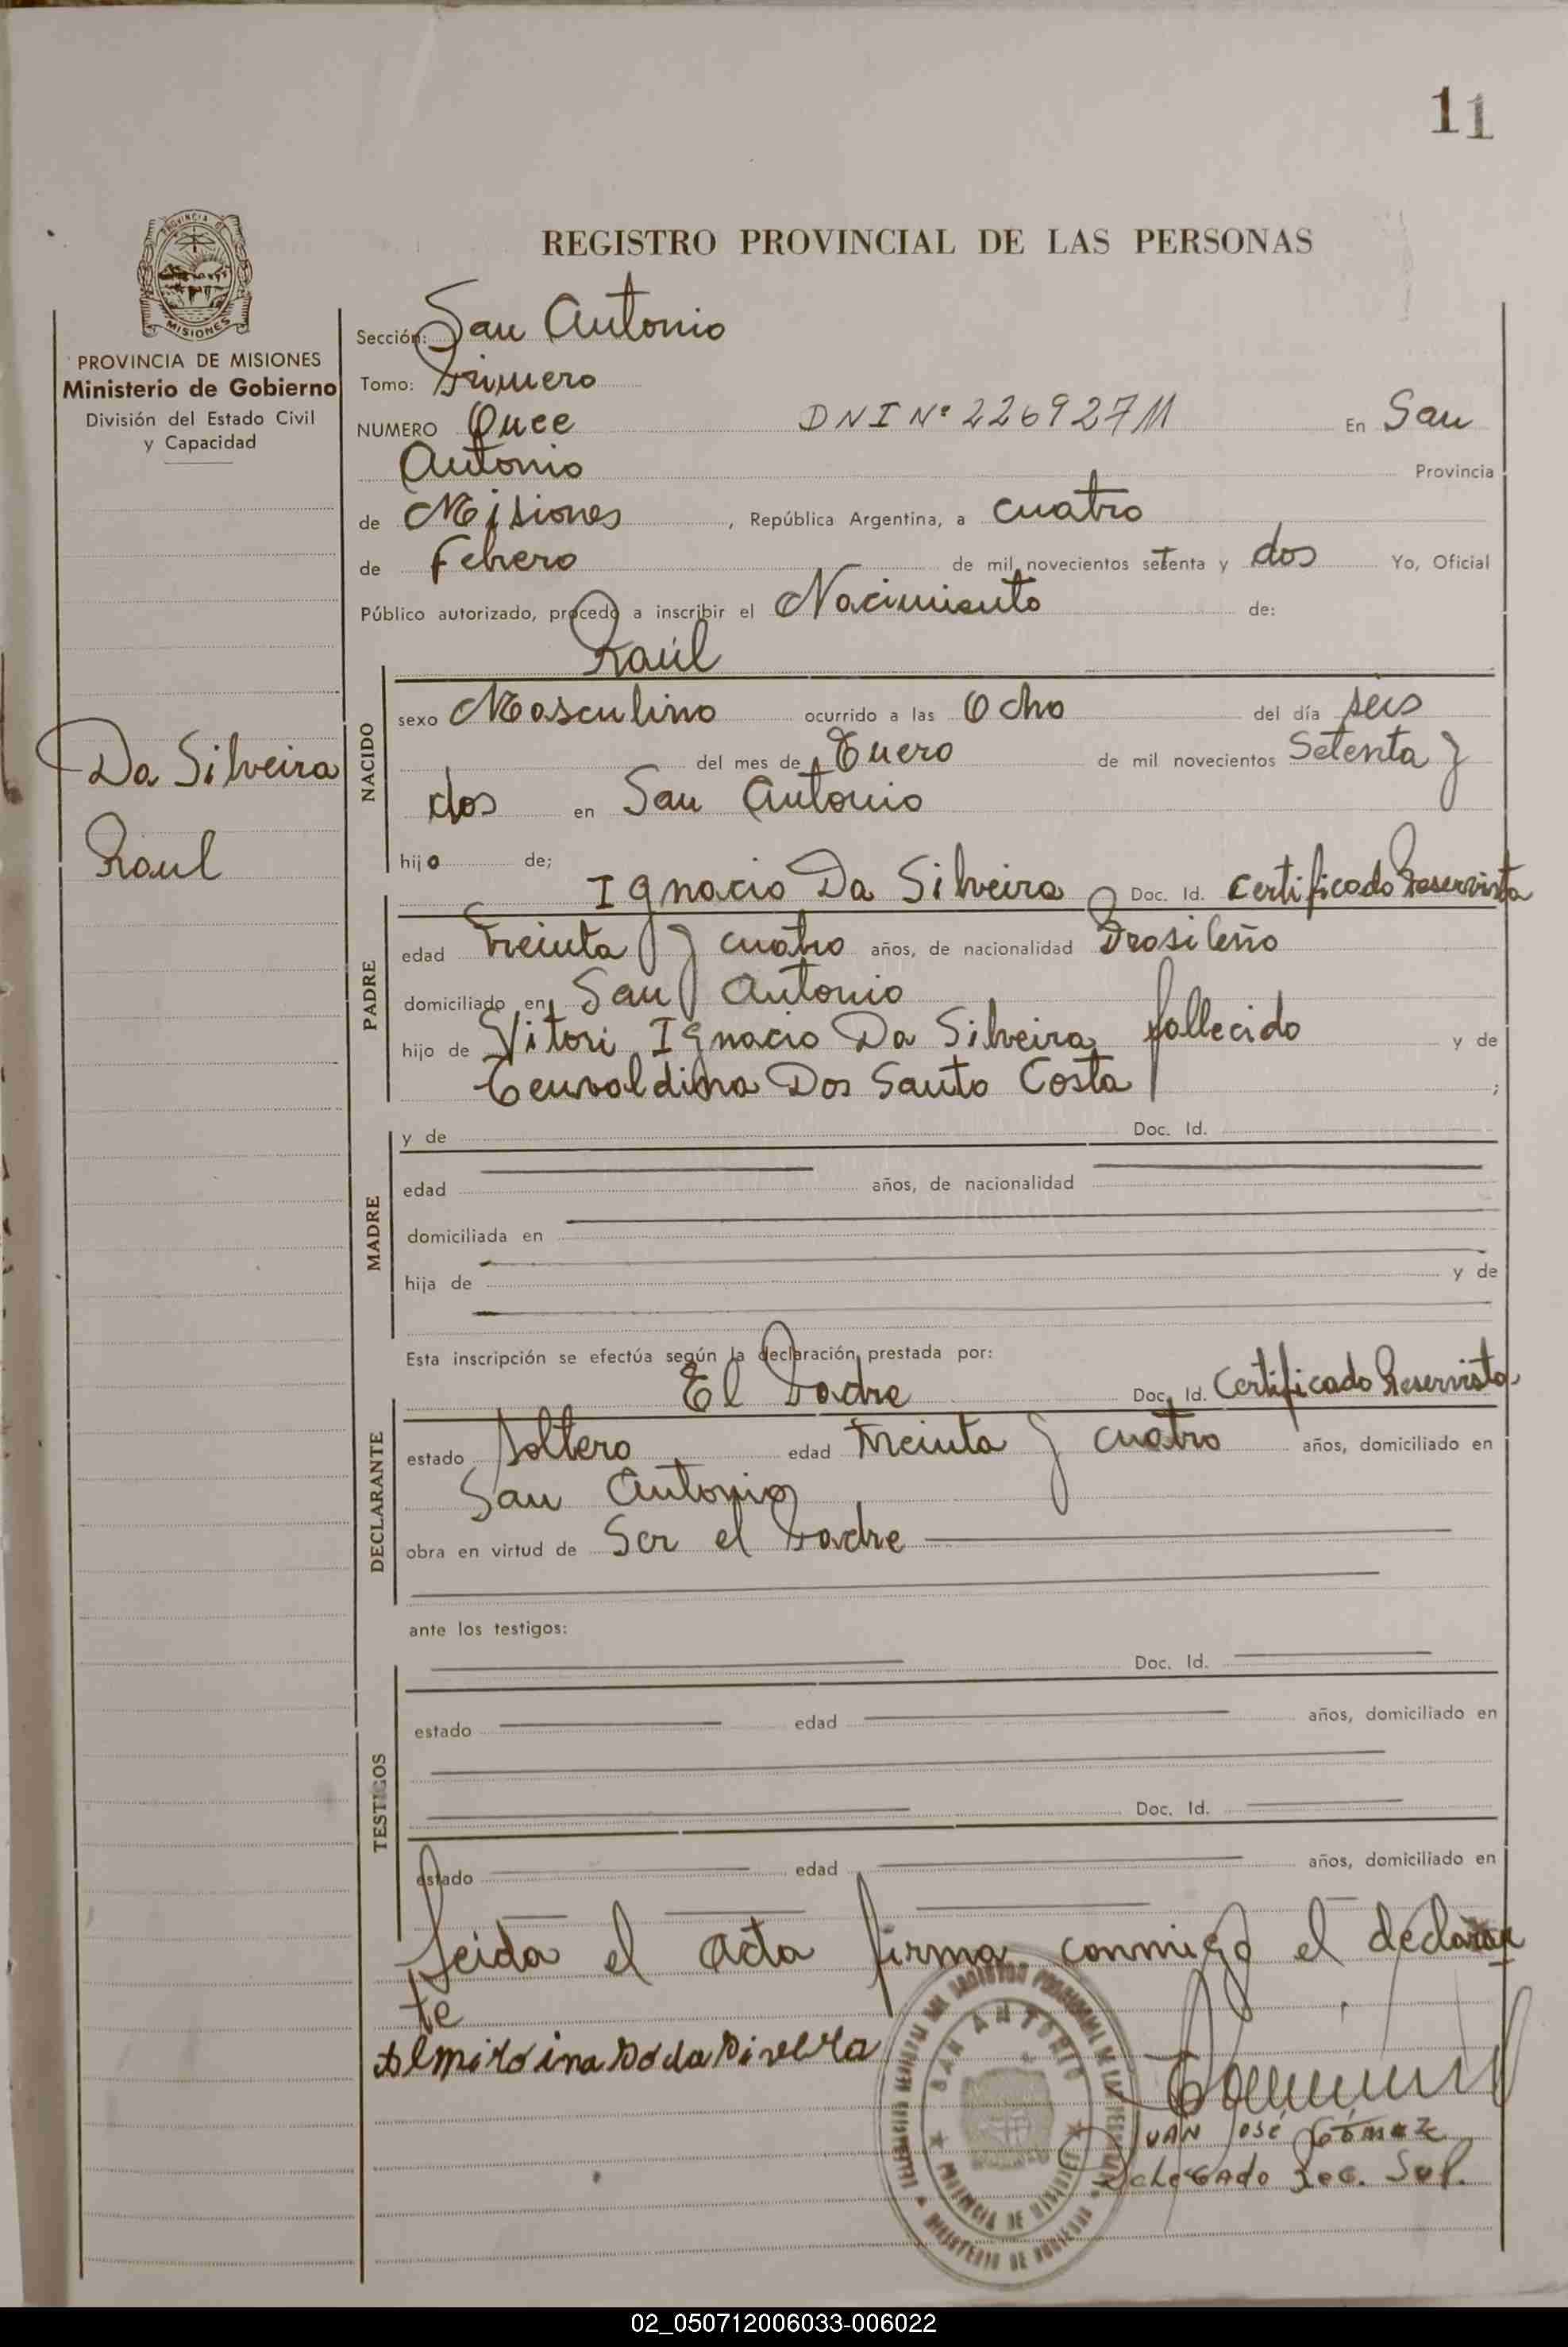 11
PROVINCIA DE
MISIONES
PROVINCIA DE MISIONES
Ministerio de Gobierno
División del Estado Civil
y Capacidad
Da Silveira
Raul
REGISTRO PROVINCIAL DE LAS PERSONAS
Sección: San Antonio
Tomo: Primero
NUMERO Once DNI Nº 22692711 En San
Antonio Provincia
de Misiones, República Argentina, a cuatro
de Febrero de mil novecientos setenta y dos Yo, Oficial
Público autorizado, procedo a inscribir el Nacimiento de:
Raúl
NACIDO
sexo Masculino ocurrido a las Ocho del día seis
del mes de Enero de mil novecientos Setenta y
dos en San Antonio
hijo de;
Ignacio Da Silveira Doc. Id. Certificado Reservista
PADRE
edad Treinta y cuatro años, de nacionalidad Brasileño
domiciliado en San Antonio
hijo de Vitori Ignacio Da Silveira fallecido y de
Dos Santo Costa ;
y de Doc. Id.
MADRE
edad años, de nacionalidad
domiciliada en
hija de y de
Esta inscripción se efectúa según la declaración prestada por:
El Padre Doc. Id. Certificado Reservista
DECLARANTE
estado Soltero edad Treinta y cuatro años, domiciliado en
San Antonio
obra en virtud de Ser el Padre
ante los testigos:
Doc. Id.
TESTIGOS
estado edad años, domiciliado en
Doc. Id.
estado edad años, domiciliado en
Leida el acta firma conmigo el declaran
te
SAN ANTONIO
PROVINCIA DE MISIONES
MINISTERIO DE GOBIERNO
JUAN JOSÉ GÓMEZ
DELEGADO Sec. Sup.
02_050712006033-006022